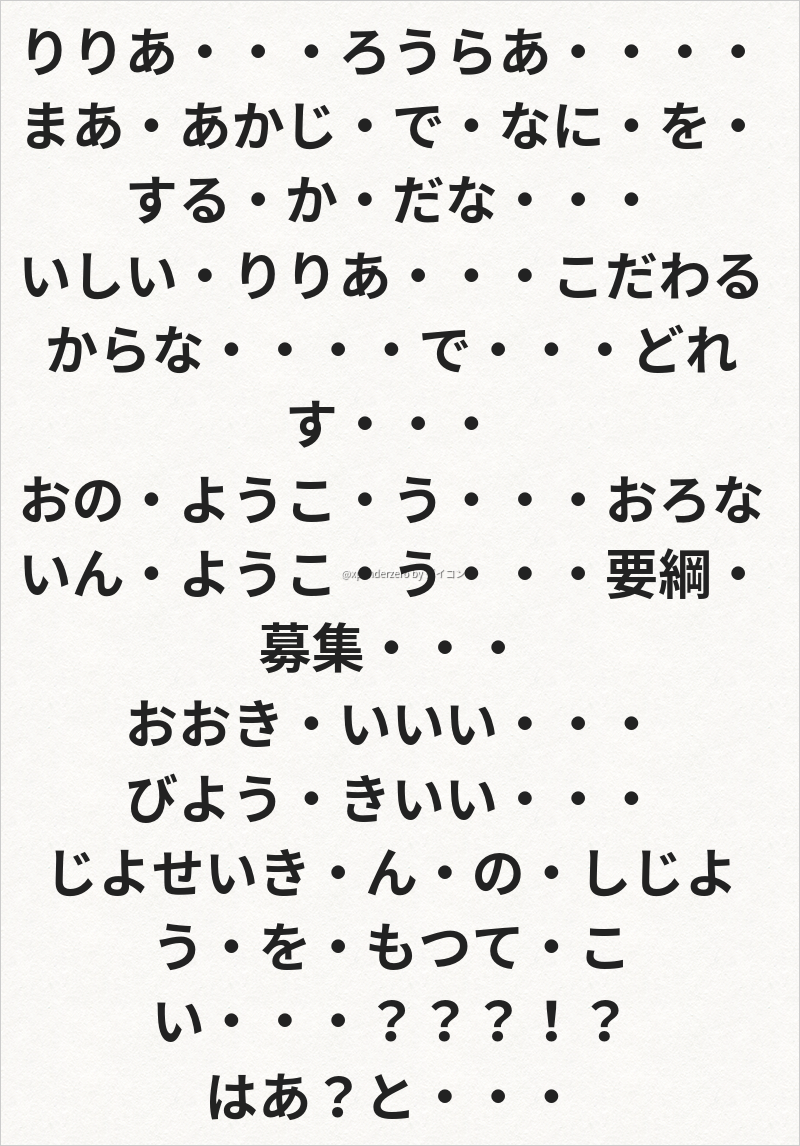 りりあ・・・ろうらあ・・・・
まあ・あかじ・で・なに・を・
する・か・だな・・・
いしい・りりあ・・・こだわる
からな・・・・で・・・どれ
す・・・
おの・ようこ・う・・・おろな
いん・ようこ・う・・・要綱・
募集・・・
おおき・いいい・・・
びよう・きいい・・・
じよせいき・ん・の・しじよ
う・を・もつて・こ
い・・・？？？！？
はあ？と・・・